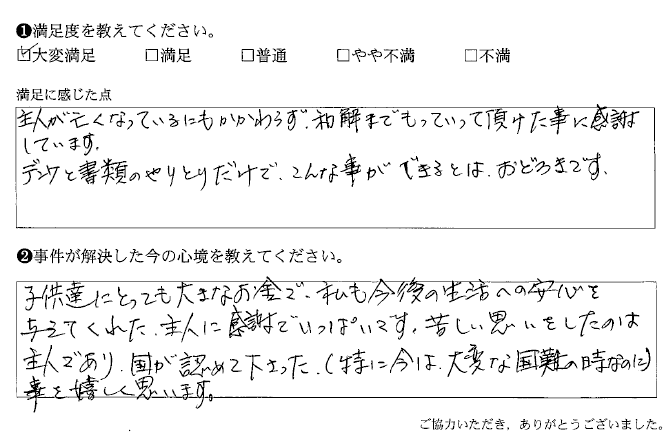 ❶満足度を教えてください。
☑大変満足 □満足 □普通 □やや不満 □不満
満足に感じた点
主人が亡くなっているにもかかわらず、和解までもっていって頂けた事に感謝
しています。
デンワと書類のやりとりだけで、こんな事ができるとは、おどろきです。
❷事件が解決した今の心境を教えてください。
子供達にとっても大きなお金で、私も今後の生活への安心を
与えてくれた、主人に感謝でいっぱいです。苦しい思いをしたのは
主人であり、国が認めて下さった、(特に今は、大変な国難の時なのに)
事を嬉しく思います。
ご協力いただき、ありがとうございました。